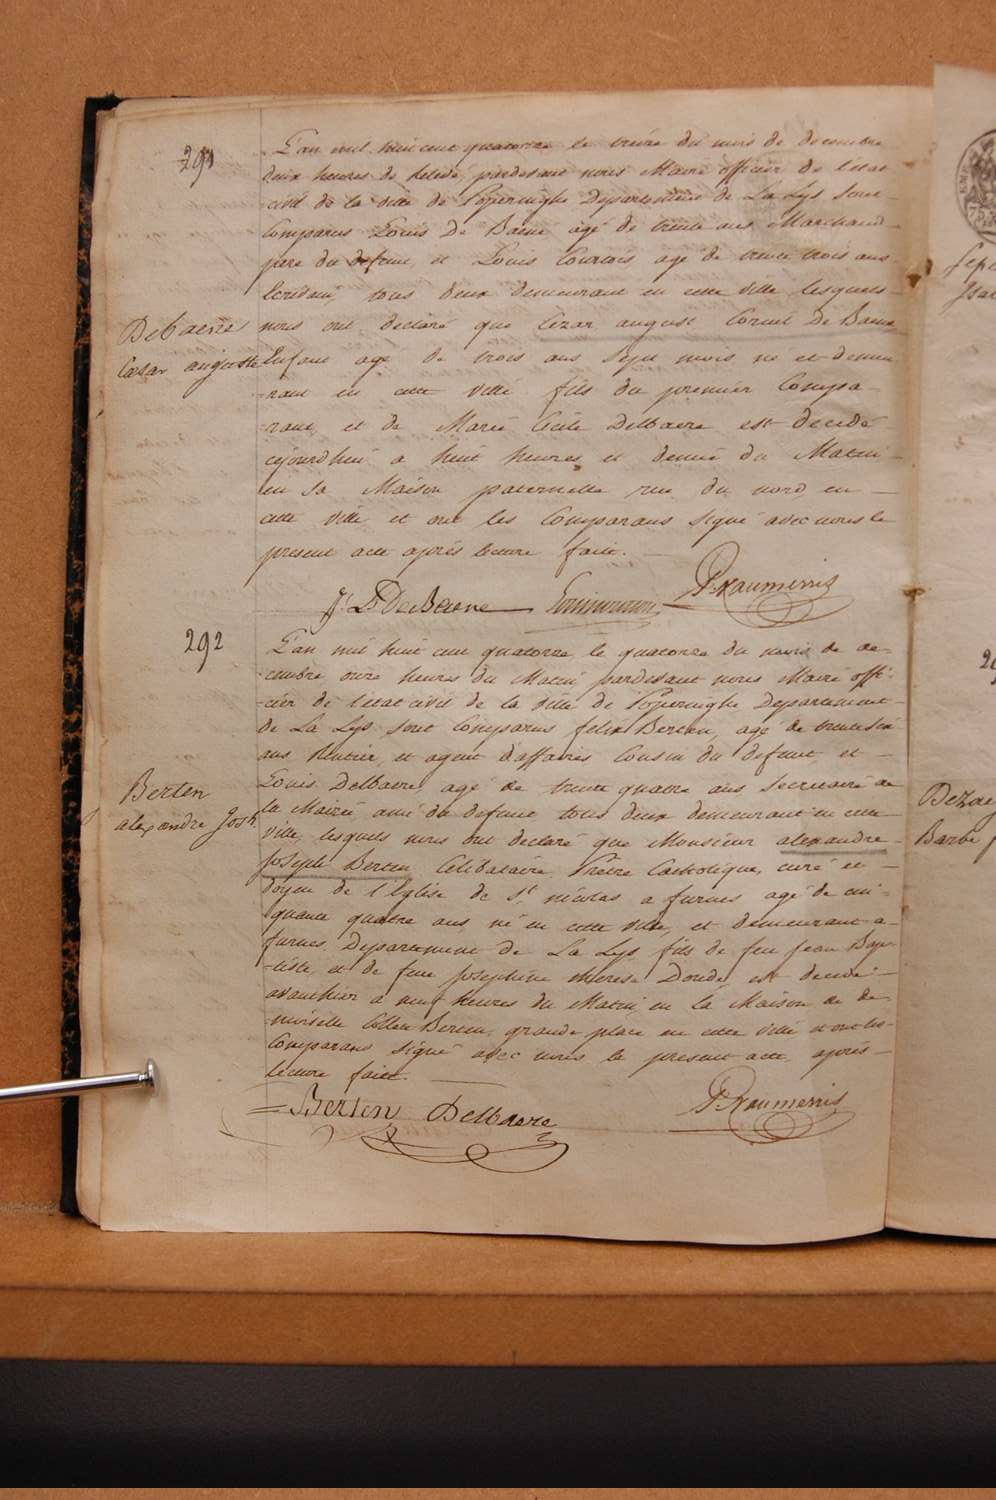 291
L'an mil huit cent quatorze le treize du mois de decembre
deux heures de relevé, pardevant nous Maire officier de l'etat
civil de la ville de Poperinghe Departement de La Lys sont
Comparus Louis De Baene agé de trente ans Marchand
pare du defunt, et Louis Courtois agé de trente trois ans
Ecrivain, tous deux demeurant en cette ville lesquels
Debaene
Cæsar auguste
nous ont declaré que Cezar august Corneil De Baene
Enfant agé de trois ans sept mois né et demeu
rant en cette ville fils du premier Compa-
rant, et de Marie Cécile Delbaere est decedé
cejourd'hui a huit heures et demie du Matin
en sa Maison paternelle rue du nord en
cette ville, et ont les Comparans signé avec nous le
present acte après lecture faite.
J. L. DeBaene
P. Raumerris
292
L'an mil huit cent quatorze le quatorze du mois de de-
cembre onze heures du Matin pardevant nous Maire offi-
cier de l'etat civil de la ville de Poperinghe Departement
de La Lys sont Comparus felix Berten, agé de trente six
ans Rentier, et agent d'affaires Cousin du defunt, et
Berten
alexandre Josh
Louis Delbaere agé de trente quatre ans Secretaire de
la Mairie ami du defunt tous deux demeurant en cette
ville, lesquels nous ont declaré que Monsieur alexandre
Joseph Berten, Celibataire, Prêtre Catholique, curé et
doyen de l'Eglise de St nicolas a furnes agé de cin-
quante quatre ans, né en cette ville, et demeurant a
furnes, Departement de La Lys fils de feu Jean Bap-
tiste, et de feue Josephine therese Doude est decedé
avanthier a neuf heures du Matin en la Maison de de-
moiselle Berten, grande place en cette ville et ont les
Comparans signé avec nous le present acte, après
lecture faite.
Berten
Delbaere
P. Raumerris
Barbe